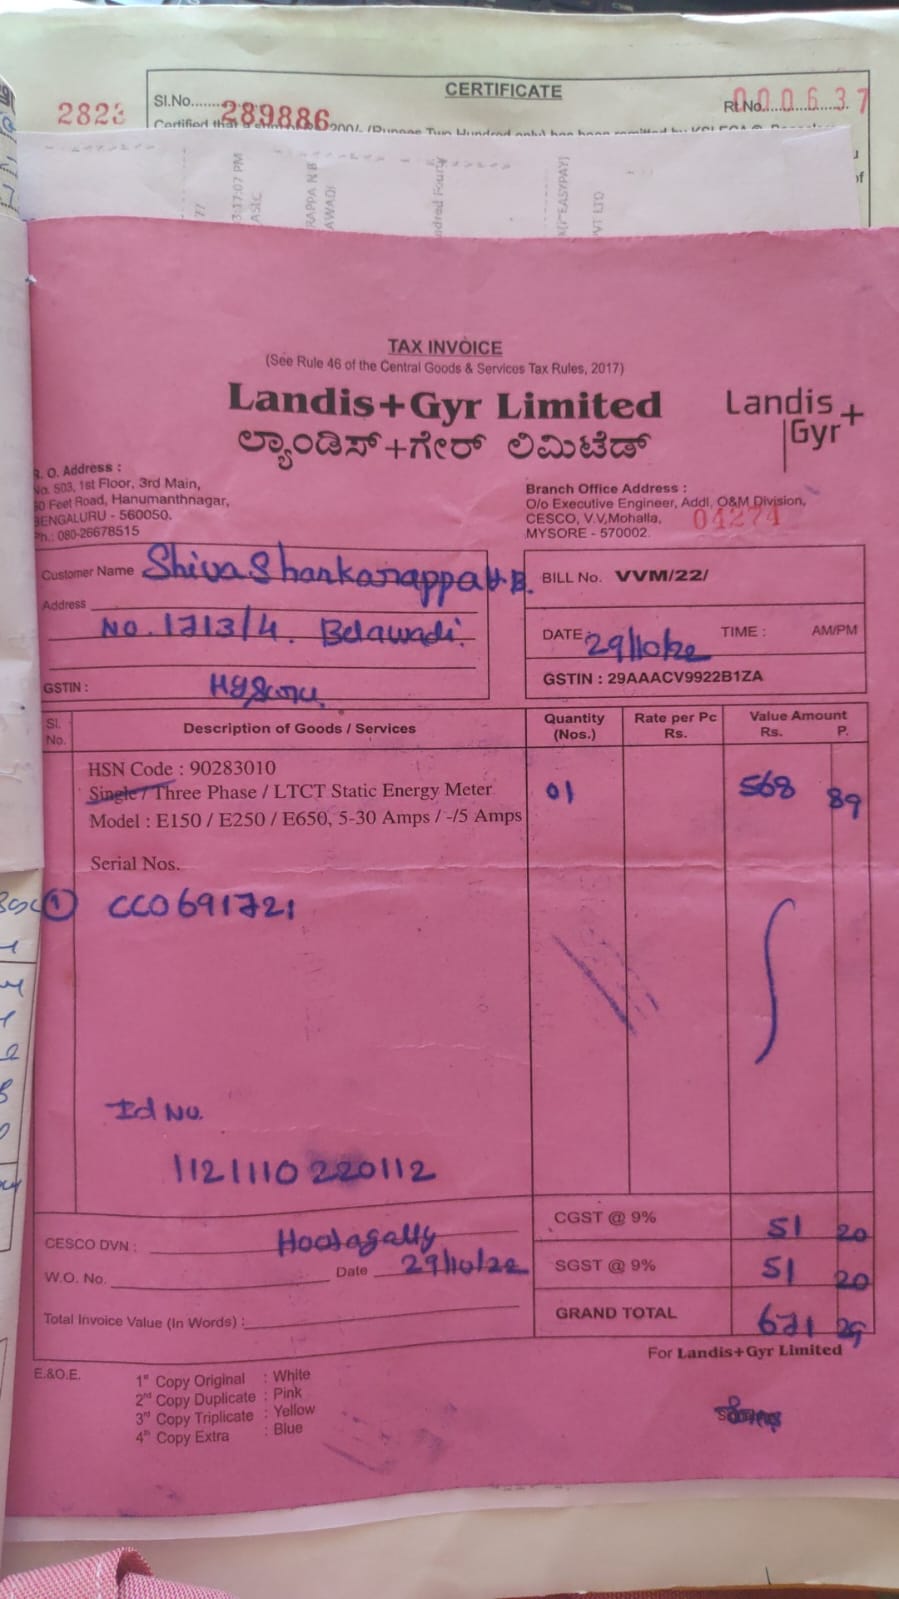 CERTIFICATE
2823
Sl.No........289886
Rt.No. 000637
3:17:07 PM
RAPPA N B
AWADI
ndred Fourty
(EASYPAY)
VT LTD
TAX INVOICE
(See Rule 46 of the Central Goods & Services Tax Rules, 2017)
Landis+Gyr Limited
Landis+Gyr
ಲ್ಯಾಂಡಿಸ್+ಗೇರ್ ಲಿಮಿಟೆಡ್
R. O. Address :
No. 503, 1st Floor, 3rd Main,
60 Feet Road, Hanumanthnagar,
BENGALURU - 560050.
Ph.: 080-26678515
Branch Office Address :
O/o Executive Engineer, Addl, O&M Division,
CESCO, V.V,Mohalla,
MYSORE - 570002.
04274
Customer Name Shivashankarappa N.B.
Address
No. 1713/4. Belawadi.
GSTIN :
BILL No. VVM/22/
DATE: 29/10/22 TIME : AM/PM
GSTIN : 29AAACV9922B1ZA
Sl. No. Description of Goods / Services Quantity (Nos.) Rate per Pc Rs. Value Amount Rs. P.
HSN Code : 90283010
Single / Three Phase / LTCT Static Energy Meter 01 568 89
Model : E150 / E250 / E650, 5-30 Amps / -/5 Amps
Serial Nos.
① CC0691721
Id No.
1121110220112
CGST @ 9% 51 20
CESCO DVN : Hootagally
SGST @ 9% 51 20
W.O. No. Date 29/10/22
GRAND TOTAL 671 29
Total Invoice Value (In Words) :
For Landis+Gyr Limited
E.&O.E.
1st Copy Original : White
2nd Copy Duplicate : Pink
3rd Copy Triplicate : Yellow
4th Copy Extra : Blue